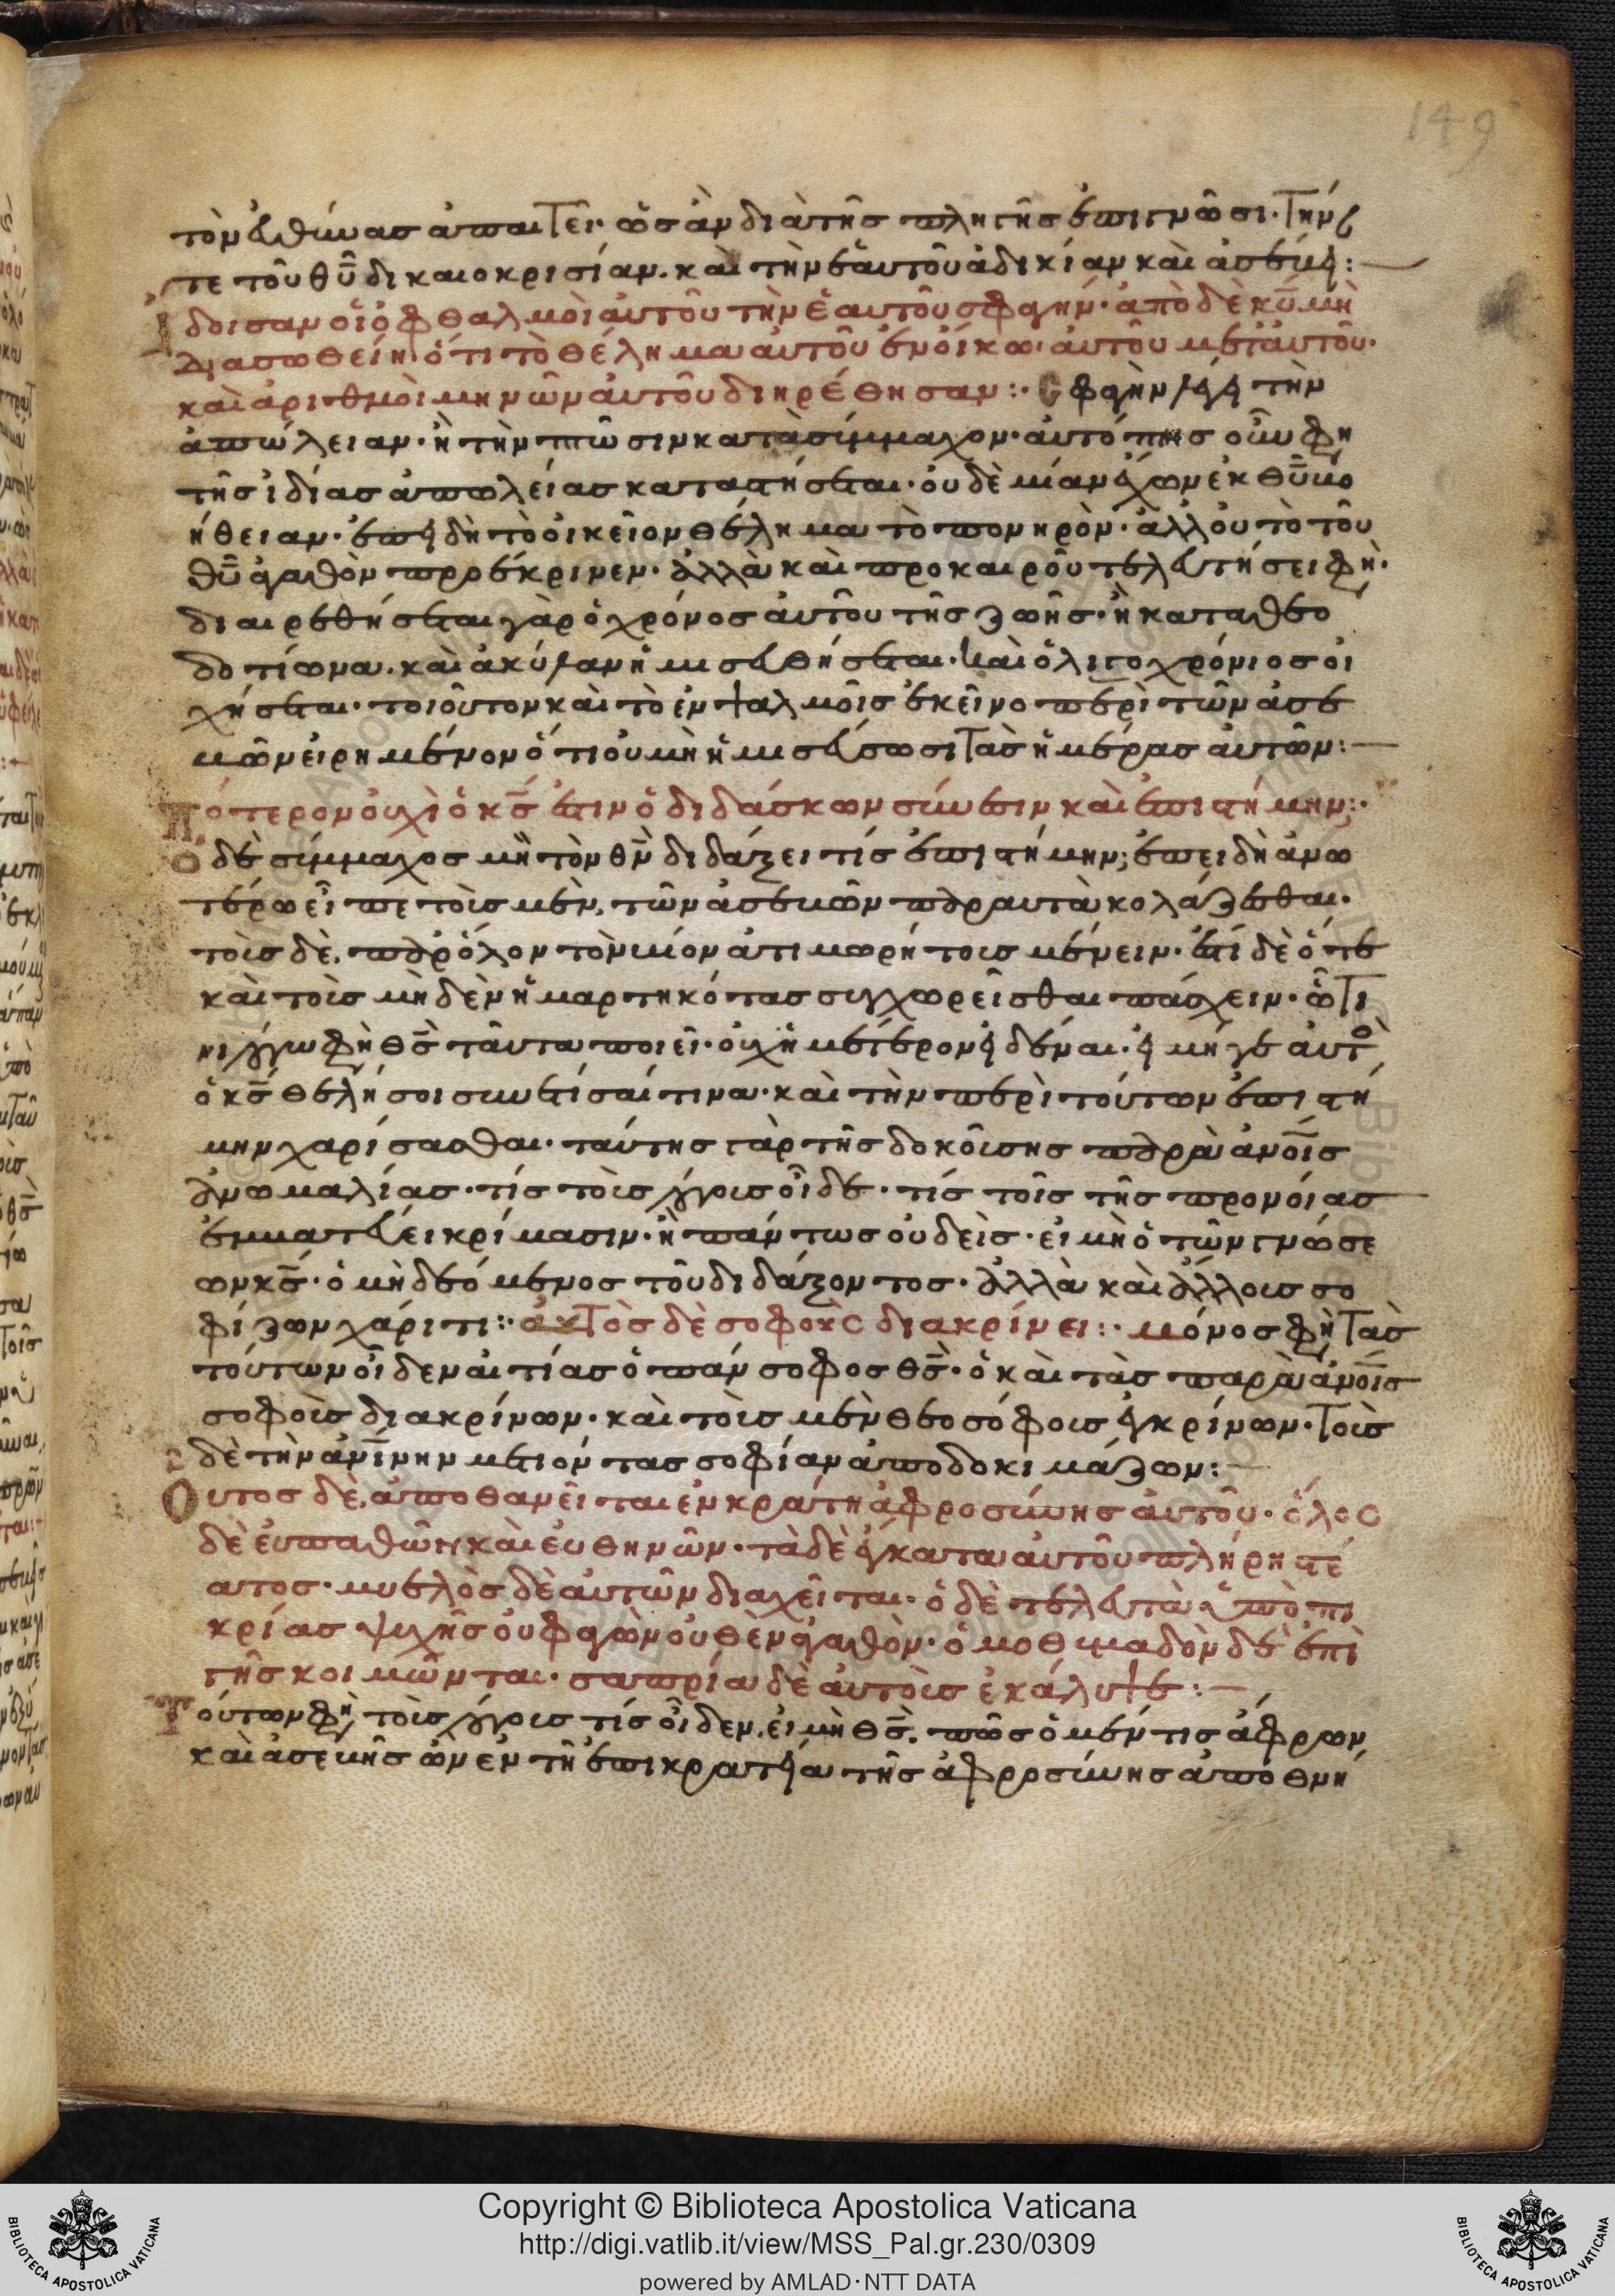 149
τὸν εὐθύνας ἀπαιτεῖ· ὡς ἂν διὰ τῆς πληγῆς ἐπιγνῶσι· τήν
τε τοῦ θῦ δικαιοκρισίαν· καὶ τὴν ἑαυτοῦ ἀδικίαν καὶ ἀσέβει:
ἴδοισαν οἱ ὀφθαλμοὶ αὐτοῦ τὴν ἑαυτοῦ σφαγήν· ἀπὸ δὲ κῦ μὴ
διασωθείη· ὅτι τὸ θέλημα αὐτοῦ ἐν οἴκω· αὐτοῦ μετ αὐτοῦ·
καὶ ἀριθμοὶ μηνῶν αὐτοῦ διηρέθησαν: σφαγὴν λέγει τὴν
ἀπώλειαν· ἢ τὴν πτῶσιν κατὰ σύμμαχον· αὐτόπτης οὖν φη
τῆς ἰδίας ἀπωλείας καταστήσεται· οὐδὲ μίαν ἔχων ἐκ θῦ βο
ήθειαν· ἐπειδὴ τὸ οἰκεῖον θέλημα τὸ πονηρὸν· ἀλλ οὐ τὸ τοῦ
θῦ ἀγαθὸν προέκρινεν· ἀλλὰ καὶ προκαιροῦ τελευτήσει φη·
διαιρεθήσεται γὰρ ὁ χρόνος αὐτοῦ τῆς ζωῆς· ἢ κατα θεο
δοτίωνα· καὶ ἀκύμαν ἡμισευθήσεται· καὶ ὀλιγοχρόνιος οἰ
χήσεται· τοιοῦτον καὶ τὸ ἐν ψαλμοῖς ἐκεῖνο περὶ τῶν ἀσε
βῶν εἰρημένον ὅτι οὐ μὴ ἡμισεύσωσι τὰς ἡμέρας αὐτῶν:
πότερον οὐχὶ ὁ κς ἐστιν ὁ διδάσκων σύνεσιν καὶ ἐπιστήμην:
ὁ δὲ σύμμαχος μὴ τὸν θν διδάξει τίς ἐπιστήμην; ἐπειδὴ ἀνω
τέρω εἶπε τοῖς μὲν, τῶν ἀσεβῶν παραυτὰ κολάζεσθαι·
τοῖς δὲ, παρ ὅλον τὸν βίον ἀτιμωρήτοις μένειν· ἔτι δὲ ὅτε
καὶ τοῖς μηδὲν ἡμαρτηκότας συγχωρεῖσθαι πάσχειν· ὧτι
νι λόγω φη θς ταῦτα ποιεῖ· οὐχ ἡμέτερον εἰδέναι· εἰ μήγε αὐτὸ
ὁ κς θελήσοι συνετίσαί τινα· καὶ τὴν περὶ τούτων ἐπιστή
μην χαρίσασθαι· ταύτης γὰρ τῆς δοκούσης παρὰ ἀνοις
ἀνωμαλίας· τίς τοῖς λόγοις οἶδε· τίς τοῖς τῆς προνοίας
ἐμβατεύει κρίμασιν· ἢ πάντως οὐδεὶς· εἰ μὴ ὁ τῶν γνώσε
ων κς· ὁ μὴ δεόμενος τοῦ διδάξοντος· ἀλλὰ καὶ ἄλλοις σο
φίζων χάριτι: αὐτὸς δὲ σοφοὺς διακρίνει: μόνος φη τὰς
τούτων οἶδεν αἰτίας ὁ πάνσοφος θς· ὁ καὶ τὰς παρὰ ἀνοις
σοφοῖς διακρίνων· καὶ τοῖς μὲν θεοσόφοις ἐγκρίνων· τοῖς
δὲ τὴν ἀνίνην μετιόντας σοφίαν ἀποδοκιμάζων:
Οὗτος δὲ, ἀποθανεῖται ἐν κράτη ἀφροσύνης αὐτοῦ· ὅλος
δὲ εὐπαθῶν καὶ εὐθηνῶν· τὰ δὲ ἔγκατα αὐτοῦ πλήρη στέ
ατος· μυελὸς δὲ αὐτῶν διαχεῖται· ὁ δὲ τελευτᾶ ὑπὸ πι
κρίας ψυχῆς οὐ φαγὼν οὐθὲν ἀγαθὸν· ὁμοθυμαδὸν δὲ ἐπὶ
γῆς κοιμῶνται· σαπρία δὲ αὐτοῖς ἐκάλυψε:
τούτων φη τοῖς λόγοις τίς οἶδεν, εἰ μὴ θς, πῶς ὁ μέν τις ἄφρων
καὶ ἀσεβὴς ὢν ἐν τῆ ἐπικρατεία τῆς ἀφροσύνης ἀποθνή
Copyright © Biblioteca Apostolica Vaticana
http://digi.vatlib.it/view/MSS_Pal.gr.230/0309
powered by AMLAD·NTT DATA
BIBLIOTECA APOSTOLICA VATICANA
BIBLIOTECA APOSTOLICA VATICANA